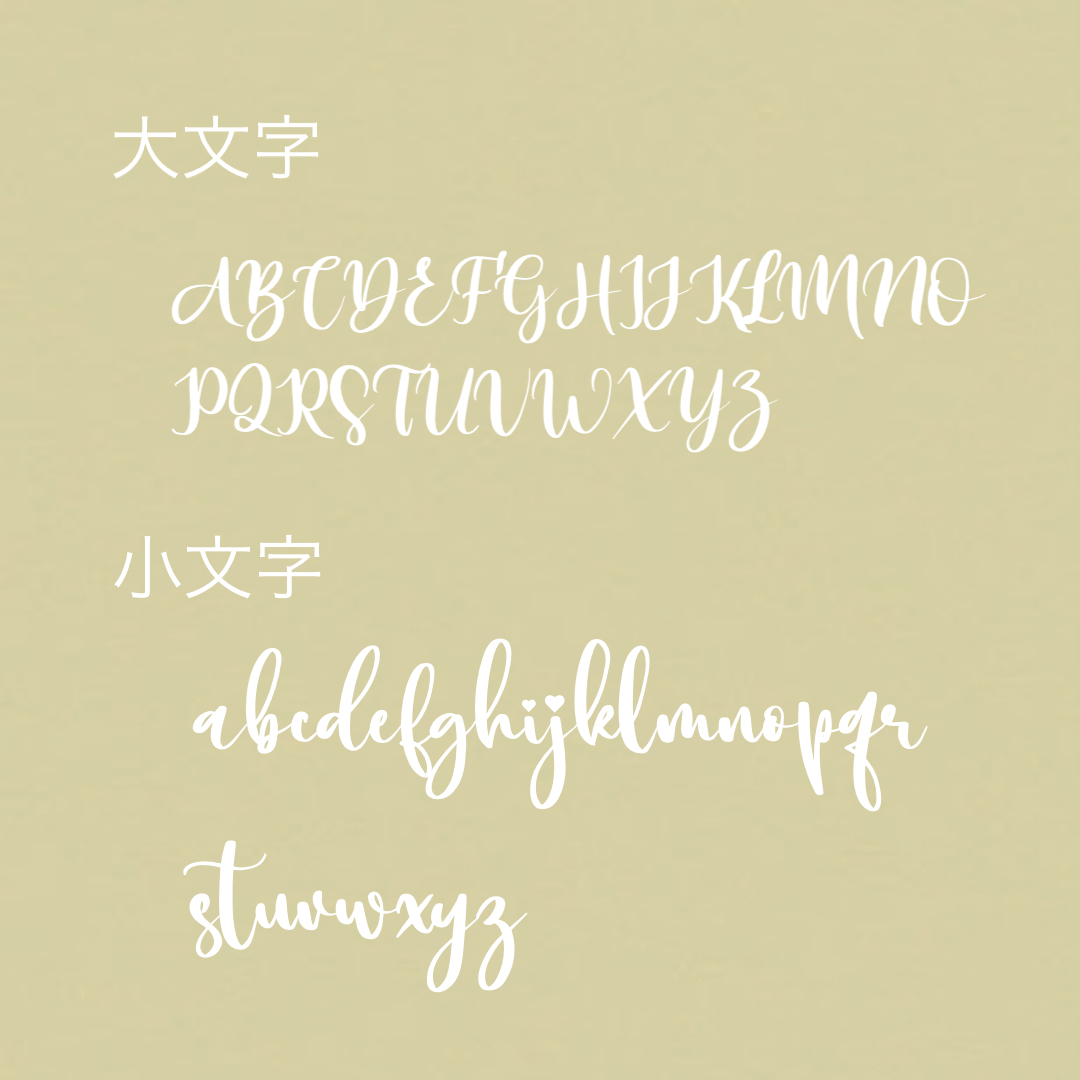 大文字
ABCDEFGHIJKLMNO
PQRSTUVWXYZ
小文字
abcdefghijklmnopqr
stuvwxyz